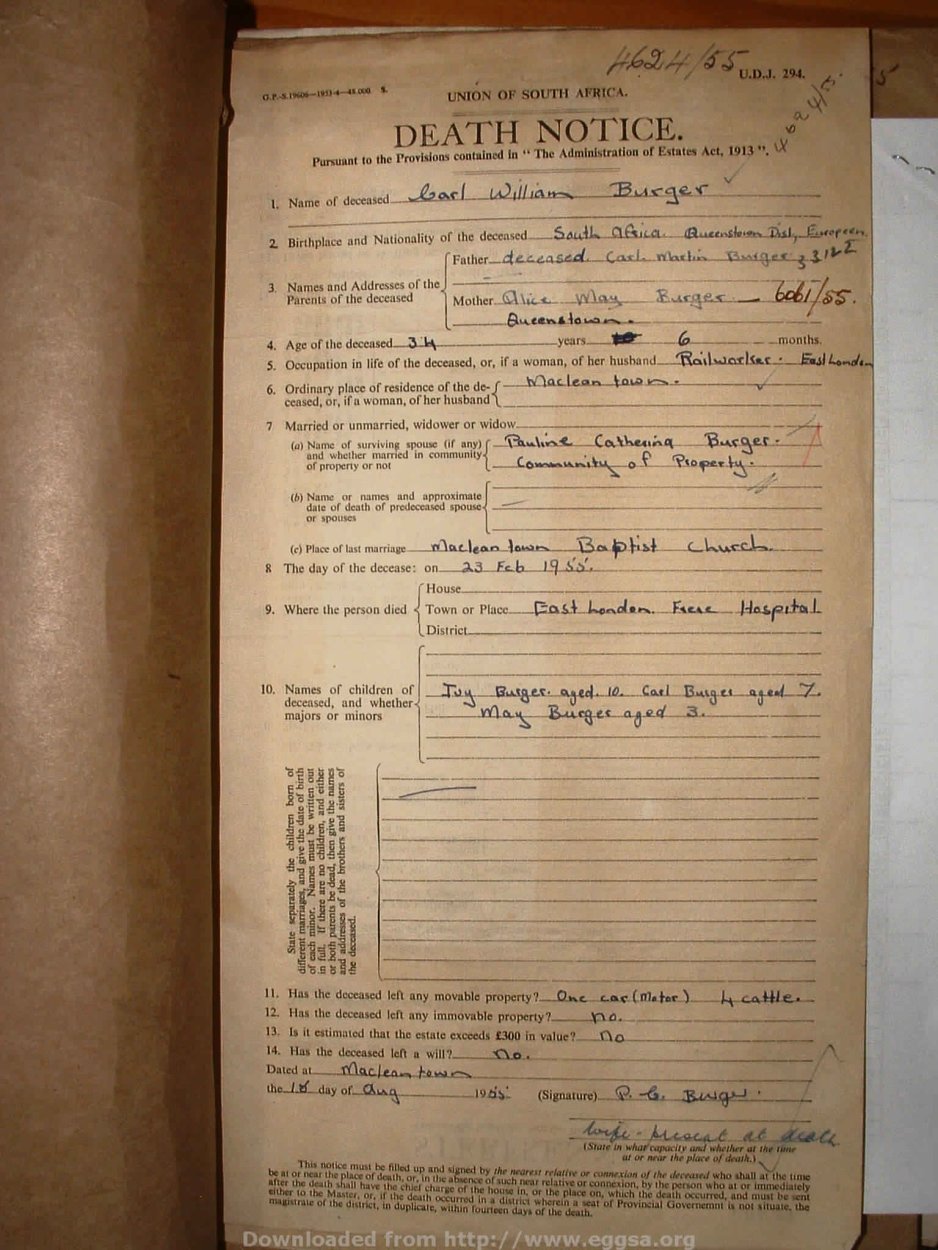 4624/55
U.D.J. 294.
G.P.-S.19606—1953-4—48,000 S.
UNION OF SOUTH AFRICA.
4624/55
DEATH NOTICE.
Pursuant to the Provisions contained in “ The Administration of Estates Act, 1913 ”.
1. Name of deceased Carl William Burger
2 Birthplace and Nationality of the deceased South Africa. Queenstown Dist, European.
3. Names and Addresses of the Parents of the deceased
Father deceased. Carl Martin Burger
Mother Alice May Burger — 6061/55.
Queenstown.
4. Age of the deceased 34 years 6 months.
5. Occupation in life of the deceased, or, if a woman, of her husband Railworker. East London
6. Ordinary place of residence of the de-
ceased, or, if a woman, of her husband
Maclean town.
7 Married or unmarried, widower or widow
(a) Name of surviving spouse (if any)
and whether married in community
of property or not
Pauline Catherina Burger.
Community of Property.
(b) Name or names and approximate
date of death of predeceased spouse
or spouses
(c) Place of last marriage Maclean town Baptist Church.
8 The day of the decease: on 23 Feb 1955.
9. Where the person died
House
Town or Place East London. Frere Hospital
District
10. Names of children of
deceased, and whether
majors or minors
Ivy Burger. aged. 10. Carl Burger aged 7.
May Burger aged 3.
State separately the children born of
different marriages, and give the date of birth
of each minor. Names must be written out
in full. If there are no children, and either
or both parents be dead, then give the names
and addresses of the brothers and sisters of
the deceased.
11. Has the deceased left any movable property? One car (Motor) 4 cattle.
12. Has the deceased left any immovable property? no.
13. Is it estimated that the estate exceeds £300 in value? No
14. Has the deceased left a will? No.
Dated at Maclean town
the 18 day of Aug 1955. (Signature) P. C. Burger.
Wife - present at death.
(State in what capacity and whether at the time
at or near the place of death.)
This notice must be filled up and signed by the nearest relative or connexion of the deceased who shall at the time
be at or near the place of death, or, in the absence of such near relative or connexion, by the person who at or immediately
after the death shall have the chief charge of the house in, or the place on, which the death occurred, and must be sent
either to the Master, or, if the death occurred in a district wherein a seat of Provincial Governemnt is not situate, the
magistrate of the district, in duplicate, within fourteen days of the death.
Downloaded from http://www.eggsa.org